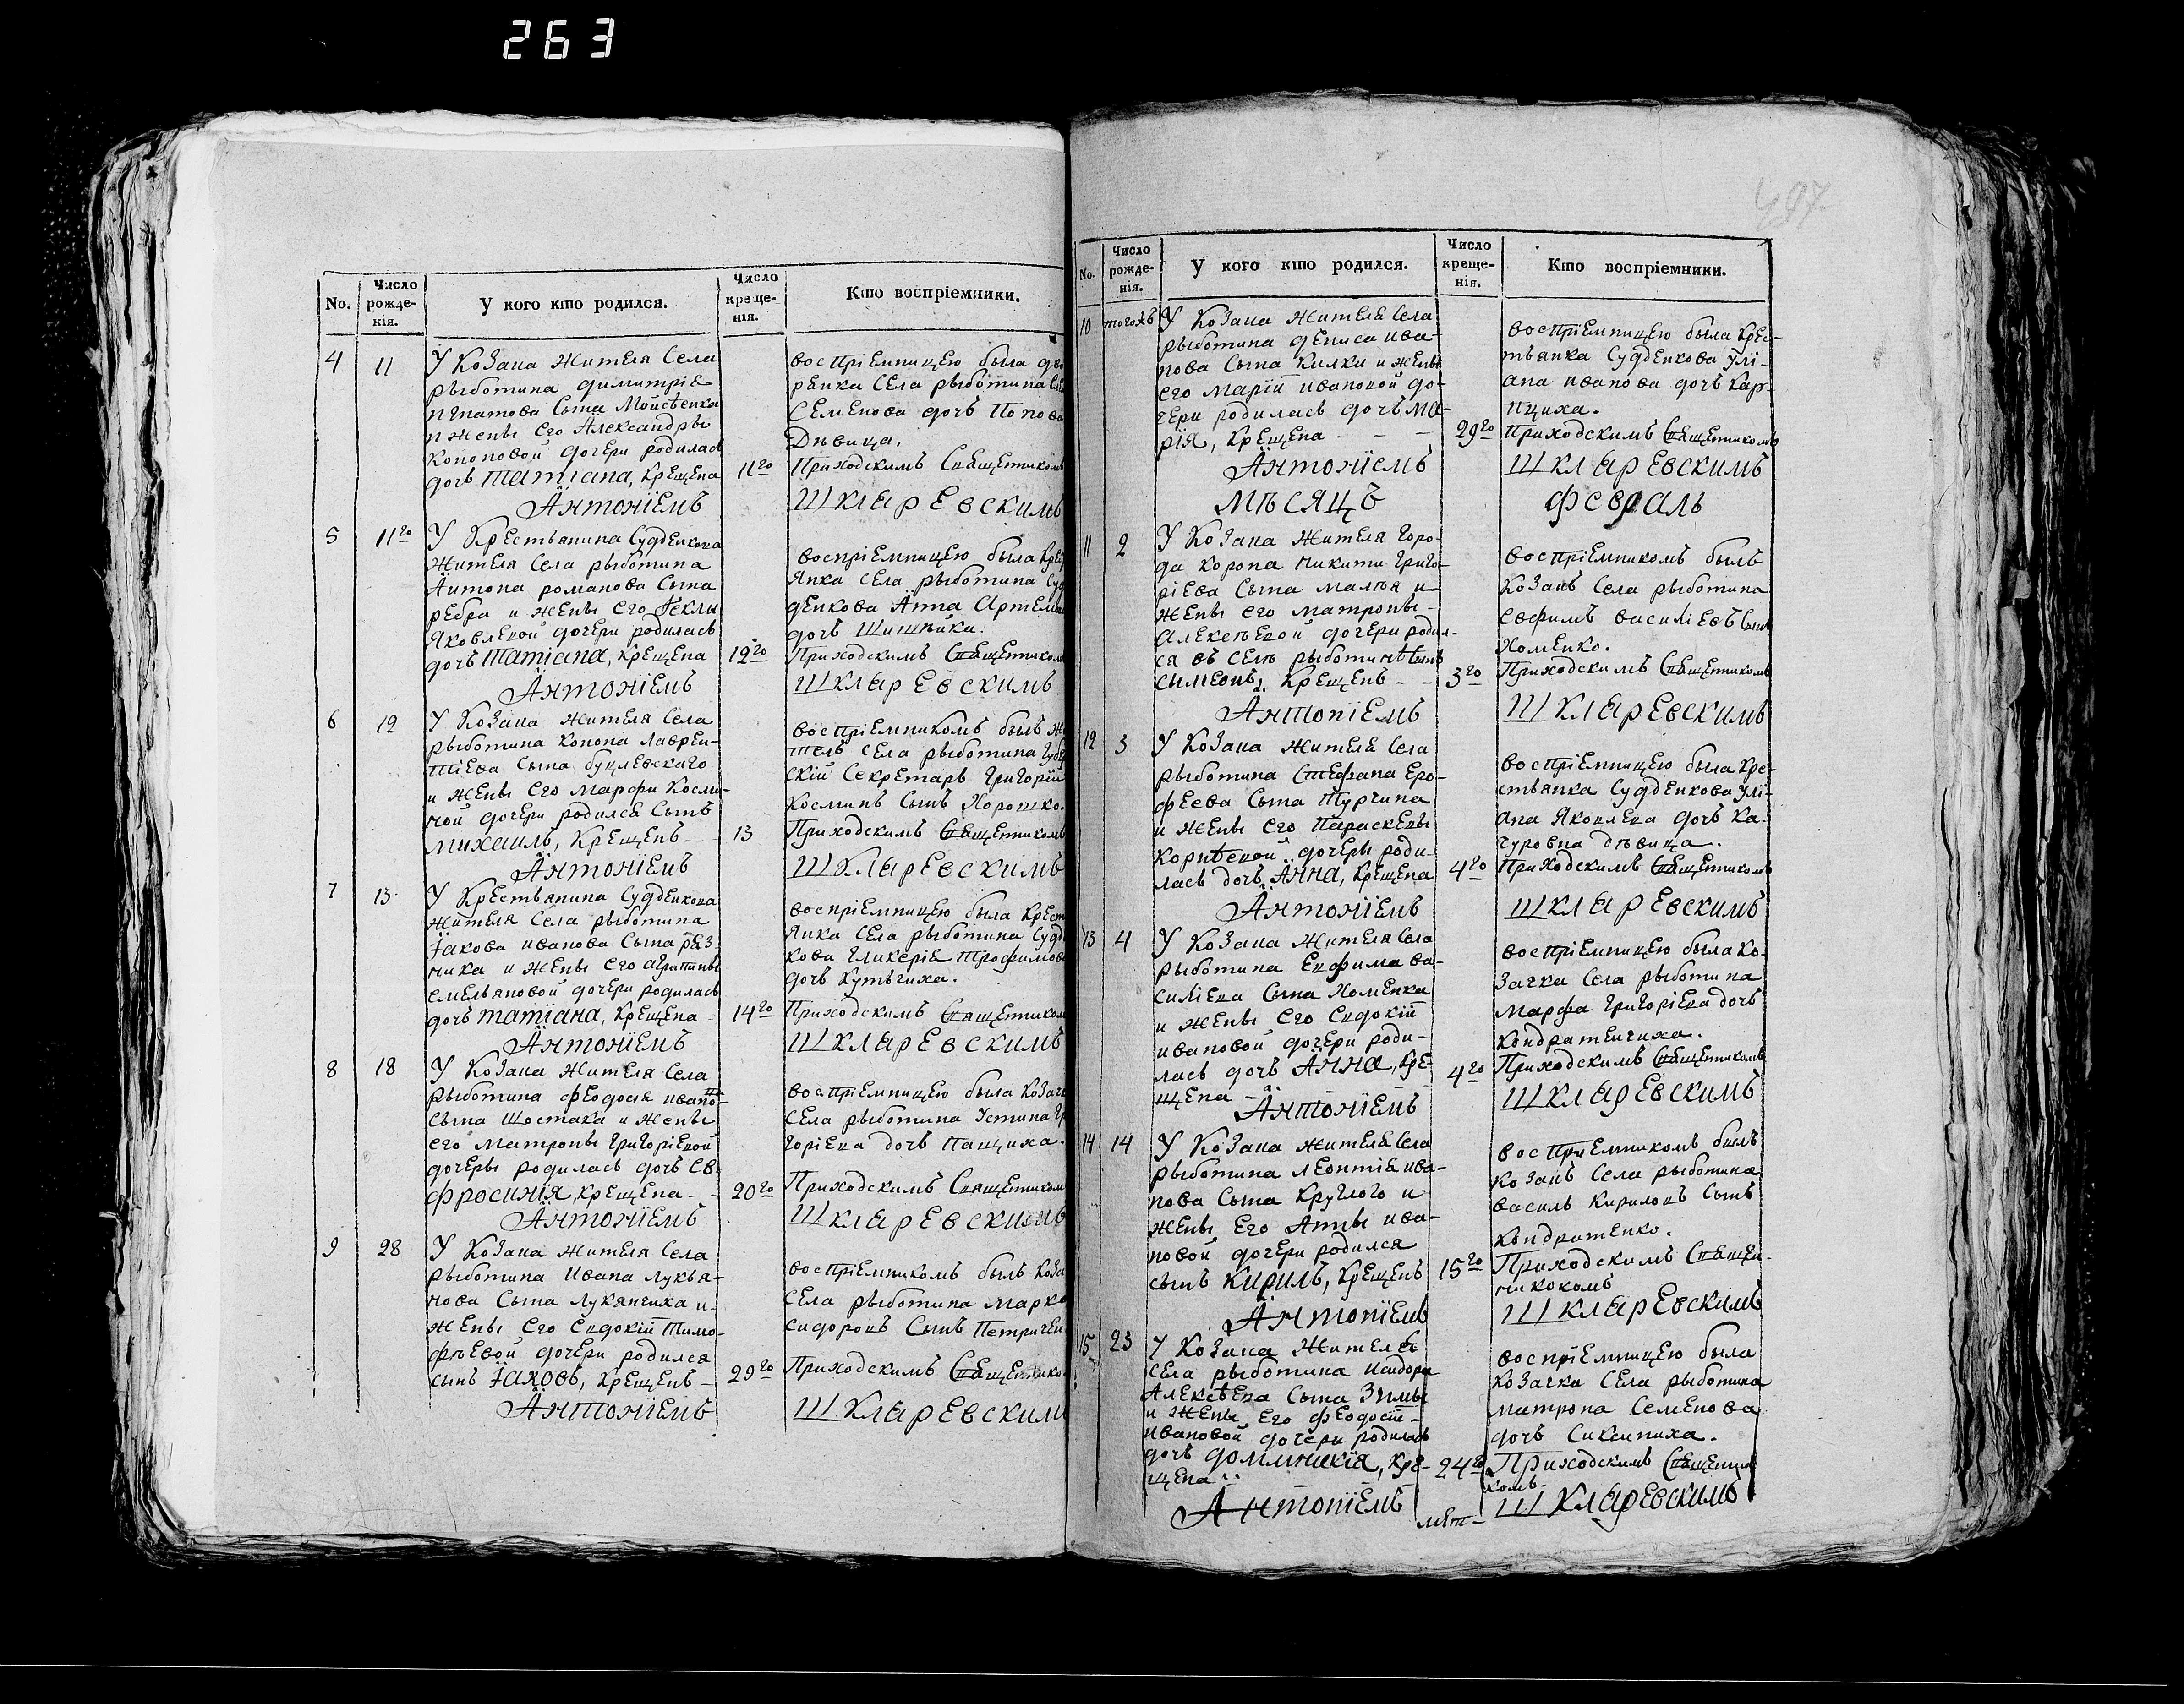 263
No.
Число рожденія.
У кого кто родился.
Число крещенія.
Кто воспріемники.
4
11
У козака жителя села
рыботина димитрія
игнатова сына Мойсѣенка
и жены его Александры
кононовой дочери родилась
дочь Татіана, крещена
11го
Антоніемъ
воспріемницею была
села рыботина
Семенова дочь
Дѣвица.
Приходскимъ Священником
Шкларевскимъ
5
11го
У Крестьянина Судденкова
жителя села рыботина
Антона романова сына
ребра и жены его Феклы
Яковлевой дочери родилась
дочь Татіана, крещена
12го
Антоніемъ
воспріемницею была
янка села рыботина
денкова Анна
дочь
Приходскимъ Священником
Шкларевскимъ
6
12
У козака жителя села
рыботина конона лаврен-
тіева сына
и жены его марфи косми-
ной дочери родился сынъ
михаилъ, крещенъ
13
Антоніемъ
воспріемникомъ былъ
тель села рыботина
скій Секретарь Григорій
косминъ сынъ Хорошко.
Приходскимъ Священником
Шкларевскимъ
7
13
У Крестьянина Судденкова
жителя села рыботина
Іакова иванова сына рѣз-
ника и жены его агрипины
емельяновой дочери родилась
дочь татіана, крещена
14го
Антоніемъ
воспріемницею была крест
янка села рыботина Судд
кова гликерія трофимов
дочь кутьчиха.
Приходскимъ Священником
Шкларевскимъ
8
18
У козака жителя села
рыботина феодосія ивано-
сына шостака и жены
его матроны григоріевой
дочеры родилась дочь ев-
фросинія, крещена
20го
Антоніемъ
воспріемницею была козач
села рыботина Устина
горіева дочь пащиха.
Приходскимъ Священником
Шкларевскимъ
9
28
У козака жителя села
рыботина ивана лукья-
нова сына лукянчика и
жены его Евдокіи тимо-
фѣевой дочери родился
сынъ Іаковъ, крещенъ
29го
Антоніемъ
воспріемникомъ былъ коза
села рыботина марко
сидоровъ сынъ Петричен
Приходскимъ Священнико
Шкларевским
497
No.
Число рожденія.
У кого кто родился.
Число крещенія.
Кто воспріемники.
10
тогожъ
У козака жителя села
рыботина дениса ива-
нова сына килки и жены
его маріи ивановой до-
чери родилась дочь ма-
рія, крещена
29го
Антоніемъ
воспріемницею была крес-
тьянка Судденкова улі-
ана иванова дочь кар-
пциха.
Приходскимъ Священникомъ
Шкларевскимъ
мѣсяцъ
февраль
11
2
У козака жителя горо-
да коропа никити григо-
ріева сына малѣя и
жены его матроны
алексѣевой дочери родил-
ся въ селѣ рыботинѣ сынъ
симеонъ, крещенъ
3го
Антоніемъ
воспріемникомъ былъ
козакъ села рыботина
евфимъ василіевъ сынъ
хоменко.
Приходскимъ Священникомъ
Шкларевскимъ
12
3
У козака жителя села
рыботина Стефана еро-
феева сына Турчина
и жены его Параскевы
корнѣевой дочеры роди-
лась дочь Анна, крещена
4го
Антоніемъ
воспріемницею была крес-
стьянка Судденкова улі-
ана яковлева дочь ка-
чуровна дѣвица.
Приходскимъ Священникомъ
Шкларевскимъ
13
4
У козака жителя села
рыботина Евфима ва-
силіева сына Хоменка
и жены его Евдокіи
ивановой дочери роди-
лась дочь Анна, кре-
щена
4го
Антоніемъ
воспріемницею была ко-
зачка села рыботина
марфа григоріева дочь
кондратенчиха.
Приходскимъ Священникомъ
Шкларевскимъ
14
14
У козака жителя села
рыботина леонтія ива-
нова сына круглого и
жены его Анны ива-
новой дочери родился
сынъ кирилъ, крещенъ
15го
Антоніемъ
воспріемникомъ былъ
козакъ села рыботина
василь кириловъ сынъ
кондратенко.
Приходскимъ Священ-
никокомъ
Шкларевскимъ
15
23
У козака жителя
села рыботина исидора
Алексѣева сына Зимы
и жены его феодосіи
ивановой дочери родилась
дочь домникія, кре-
щена
24го
Антоніемъ
воспріемницею была
козачка села рыботина
матрона Семенова
дочь
Приходскимъ Священни
комъ
Шкларевскимъ